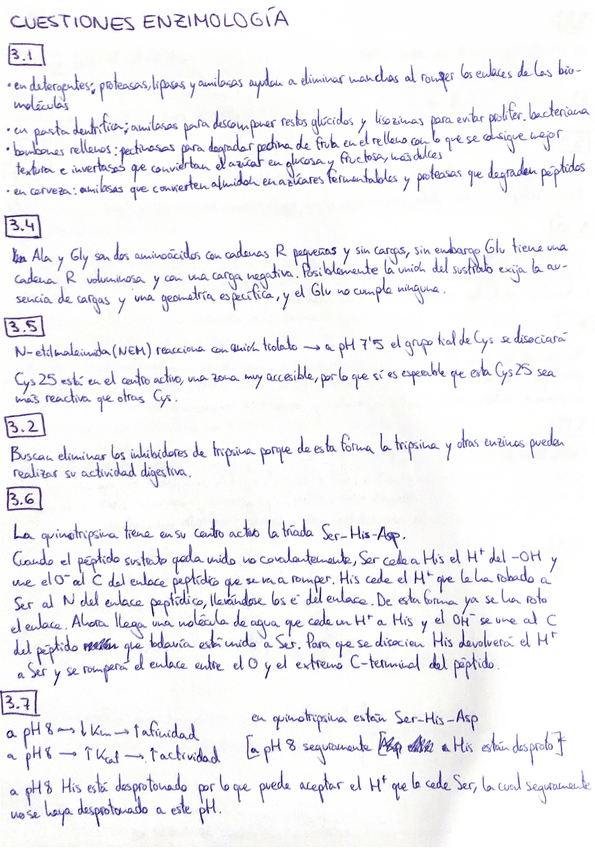 CUESTIONES ENZIMOLOGÍA
3.1
• en detergentes: proteasas, lipasas y amilasas ayudan a eliminar manchas al romper los enlaces de las bio-
moléculas
• en pasta dentífrica: amilasas para descomponer restos glúcidos y lisozimas para evitar prolifer. bacteriana
• bombones rellenos: pectinasas para degradar pectina de fruta en el relleno con lo que se consigue mejor
textura e invertasas que conviertan el azúcar en glucosa y fructosa, más dulces
• en cerveza: amilasas que convierten almidón en azúcares fermentables y proteasas que degraden péptidos
3.4
Ala y Gly son dos aminoácidos con cadenas R pequeñas y sin cargas, sin embargo Glu tiene una
cadena R voluminosa y con una carga negativa. Posiblemente la unión del sustrato exija la au-
sencia de cargas y una geometría específica, y el Glu no cumple ninguna.
3.5
N-etilmaleimida (NEM) reacciona con anión tiolato → a pH 7'5 el grupo tiol de Cys se disociará
Cys 25 está en el centro activo, una zona muy accesible, por lo que sí es esperable que esta Cys 25 sea
más reactiva que otras Cys.
3.2
Buscan eliminar los inhibidores de tripsina porque de esta forma la tripsina y otras enzimas pueden
realizar su actividad digestiva.
3.6
La quimotripsina tiene en su centro activo la tríada Ser-His-Asp.
Cuando el péptido sustrato queda unido no covalentemente, Ser cede a His el H⁺ del -OH y
une el O⁻ al C del enlace peptídico que se va a romper. His cede el H⁺ que le ha robado a
Ser al N del enlace peptídico, llevándose los e⁻ del enlace. De esta forma ya se ha roto
el enlace. Ahora llega una molécula de agua que cede un H⁺ a His y el OH⁻ se une al C
del péptido que todavía está unido a Ser. Para que se disocien His devolverá el H⁺
a Ser y se romperá el enlace entre el O y el extremo C-terminal del péptido.
3.7
a pH 8 → ↓ Km → ↑ afinidad
a pH 8 → ↑ Kcat → ↑ actividad
en quimotripsina están Ser-His-Asp
[a pH 8 seguramente His están desproto]
a pH 8 His está desprotonado por lo que puede aceptar el H⁺ que le cede Ser, la cual seguramente
no se haya desprotonado a este pH.